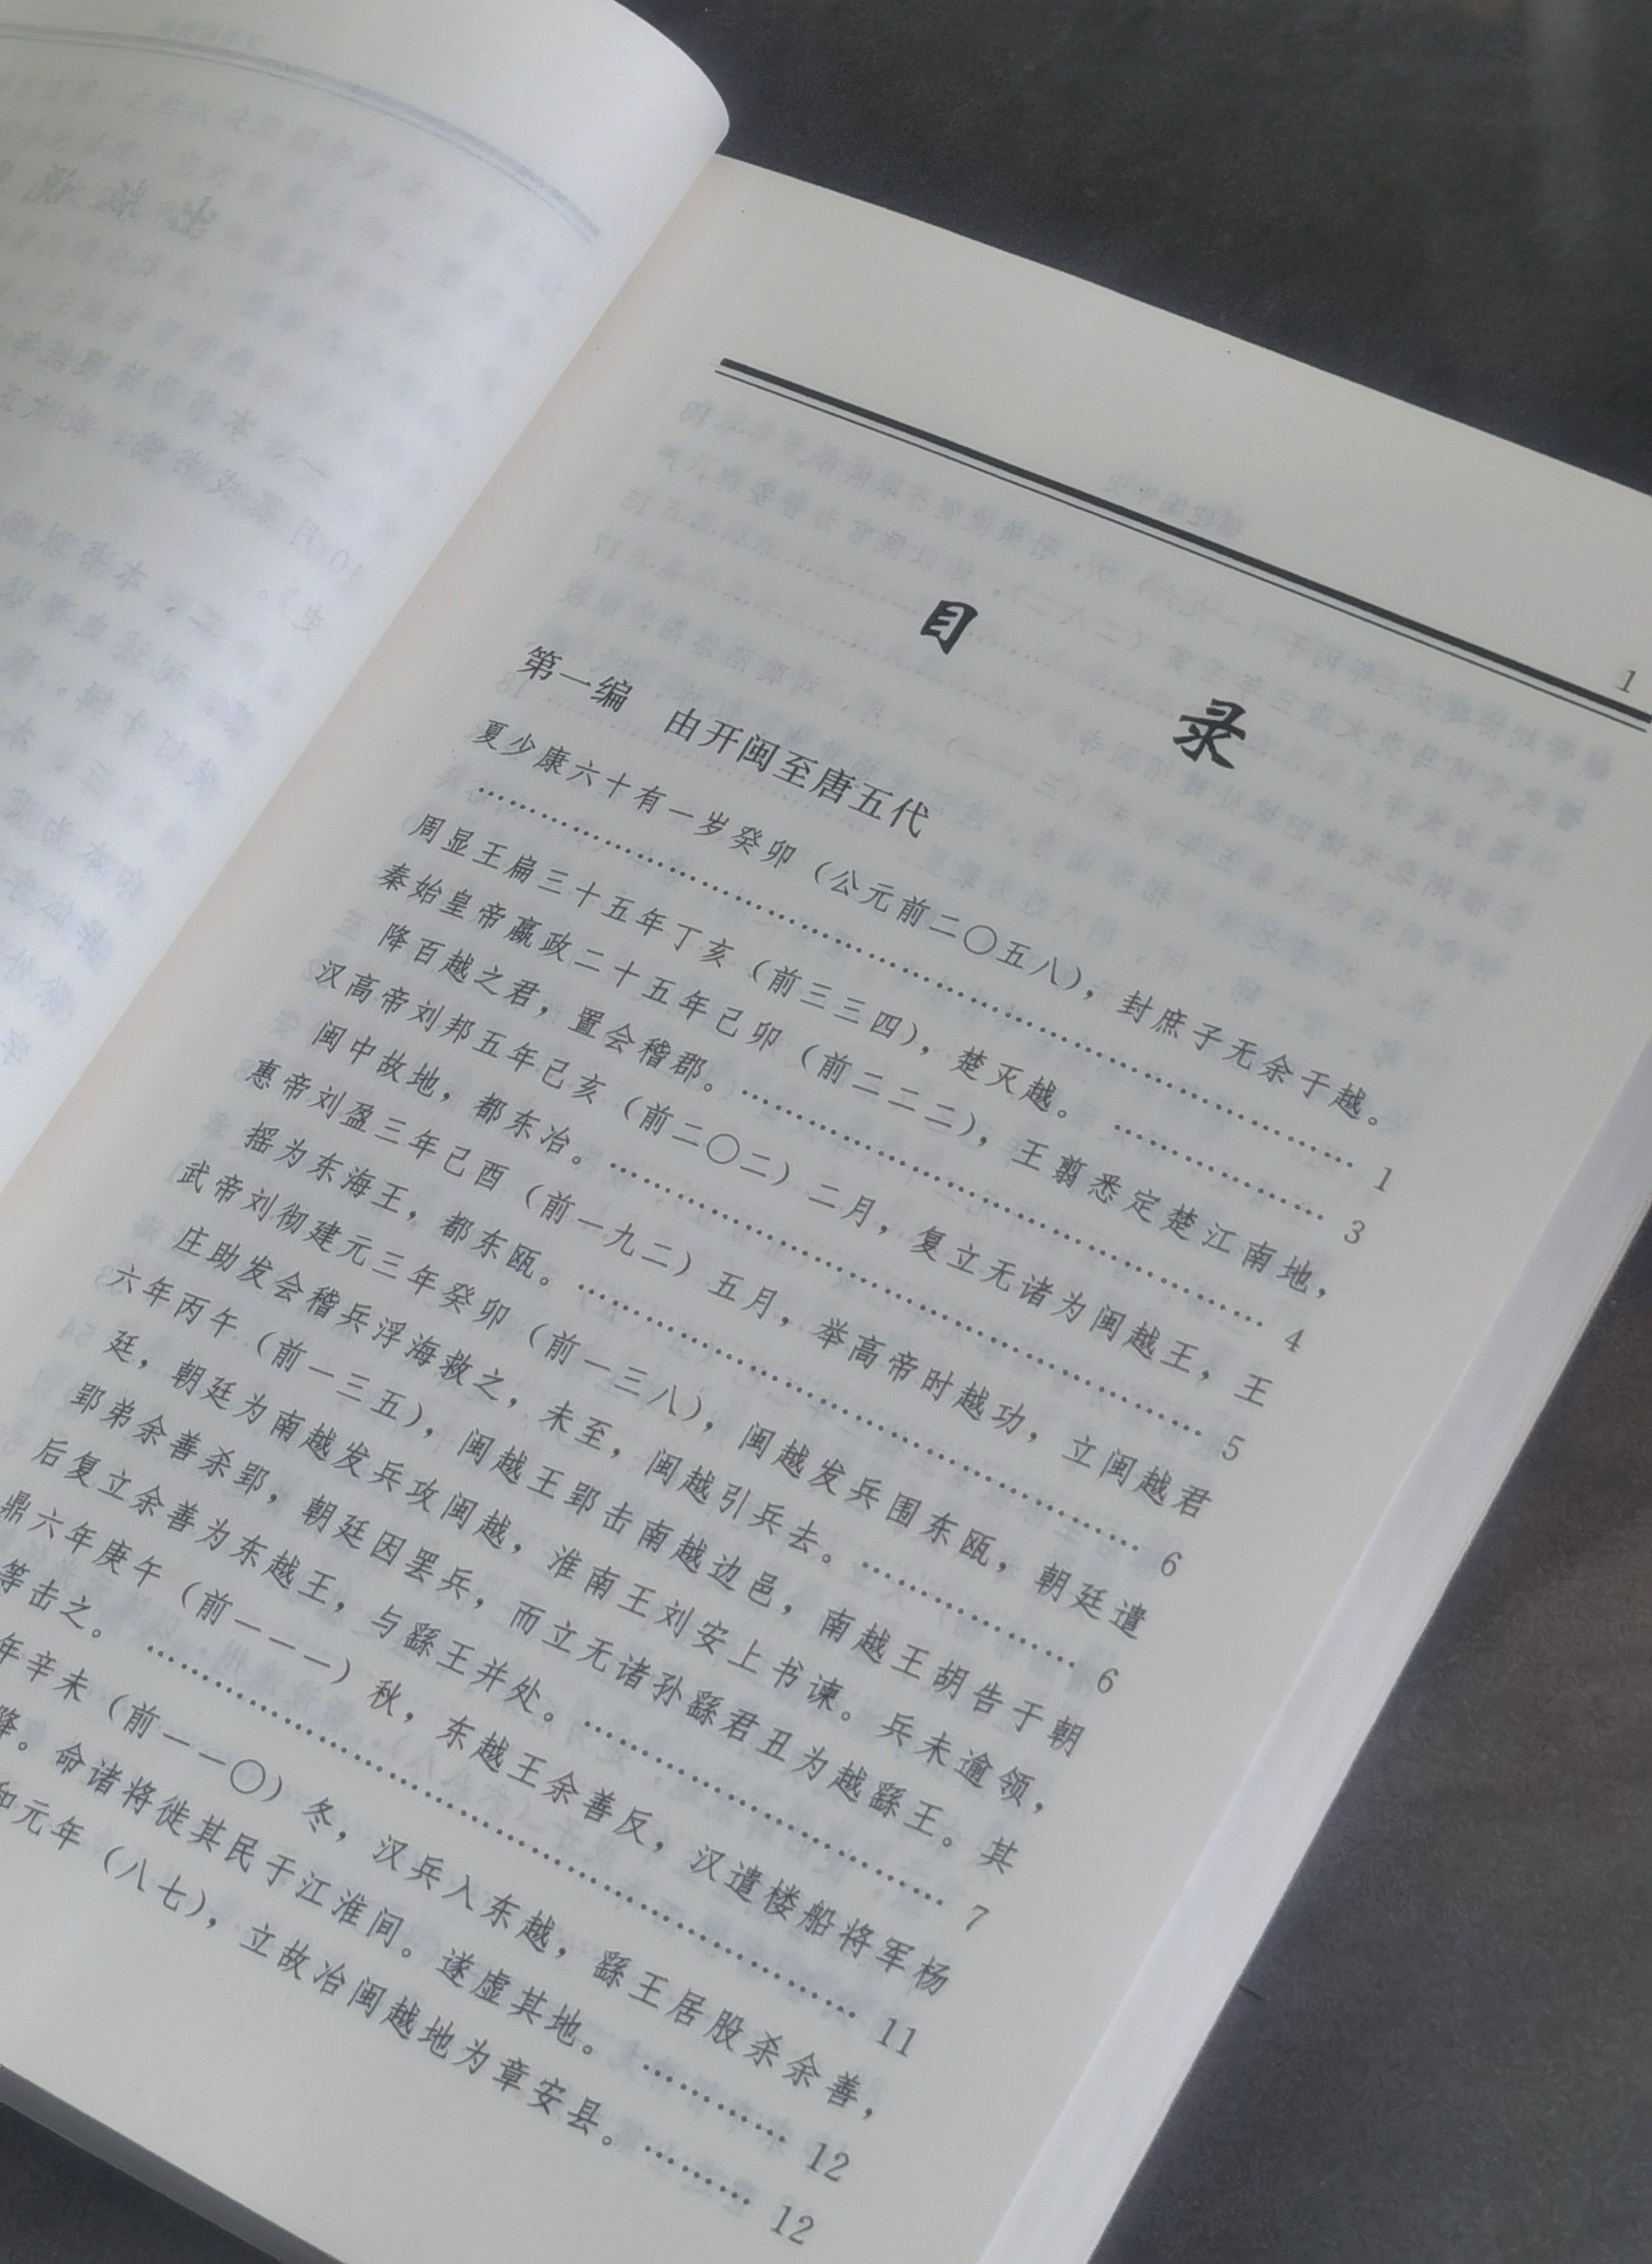 1
目 录
第一编 由开闽至唐五代
夏少康六十有一岁癸卯（公元前二〇五八），封庶子无余于越。
…………………………………………………………………… 1
周显王扁三十五年丁亥（前三三四），楚灭越。 ……………… 3
秦始皇帝嬴政二十五年己卯（前二二二），王翦悉定楚江南地，
降百越之君，置会稽郡。…………………………………………… 4
汉高帝刘邦五年己亥（前二〇二）二月，复立无诸为闽越王，王
闽中故地，都东冶。………………………………………………… 5
惠帝刘盈三年己酉（前一九二）五月，举高帝时越功，立闽越君
摇为东海王，都东瓯。……………………………………………… 6
武帝刘彻建元三年癸卯（前一三八），闽越发兵围东瓯，朝廷遣
庄助发会稽兵浮海救之，未至，闽越引兵去。………………… 6
六年丙午（前一三五），闽越王郢击南越边邑，南越王胡告于朝
廷，朝廷为南越发兵攻闽越，淮南王刘安上书谏。兵未逾领，
郢弟余善杀郢，朝廷因罢兵，而立无诸孙繇君丑为越繇王。其
后复立余善为东越王，与繇王并处。…………………………… 7
鼎六年庚午（前一一一）秋，东越王余善反，汉遣楼船将军杨
等击之。 …………………………………………………………… 11
年辛未（前一一〇）冬，汉兵入东越，繇王居股杀余善，
降。命诸将徙其民于江淮间。遂虚其地。 …………… 12
和元年（八七），立故冶闽越地为章安县。………… 12